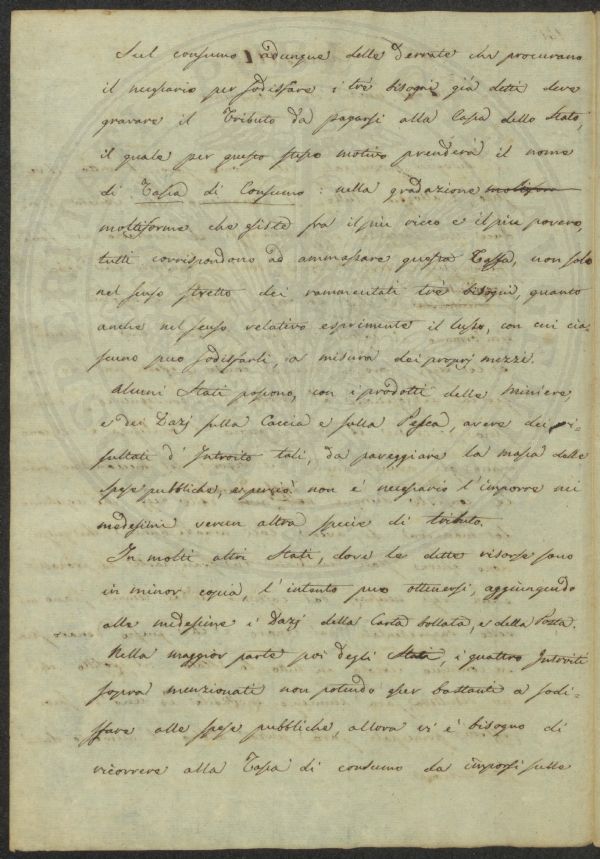 Sul consumo adunque delle derrate che procurano
il necessario per sodisfare i trè bisogni già detti deve
gravare il Tributo da pagarsi alla Cassa dello Stato,
il quale per questo stesso motivo prenderà il nome
di Tassa di Consumo: nella gradazione moltifor
moltiforme che esiste fra il più ricco e il più povero,
tutti corrispondono ad ammassare questa Tassa, non solo
nel senso stretto dei rammentati trè bisogni, quanto
anche nel senso relativo esprimente il lusso, con cui cia-
scuno può sodisfarli, a misura dei proprj mezzi.
Alcuni Stati possono, con i prodotti delle Miniere,
e dei Dazj sulla Caccia e sulla Pesca, avere dei ri-
sultati d'Introito tali, da pareggiare la massa delle
spese pubbliche, e perciò non è necessario l'imporre nei
medesimi verun altra specie di tributo.
In molti altri Stati, dove le dette risorse sono
in minor copia, l'intento può ottenersi, aggiungendo
alle medesime i Dazj della Carta bollata, e della Posta.
Nella maggior parte poi degli Stati, i quattro Introiti
sopra menzionati non potendo esser bastanti a sodi-
sfare alle spese pubbliche, allora vi è bisogno di
ricorrere alla Tassa di consumo da imporsi sulle